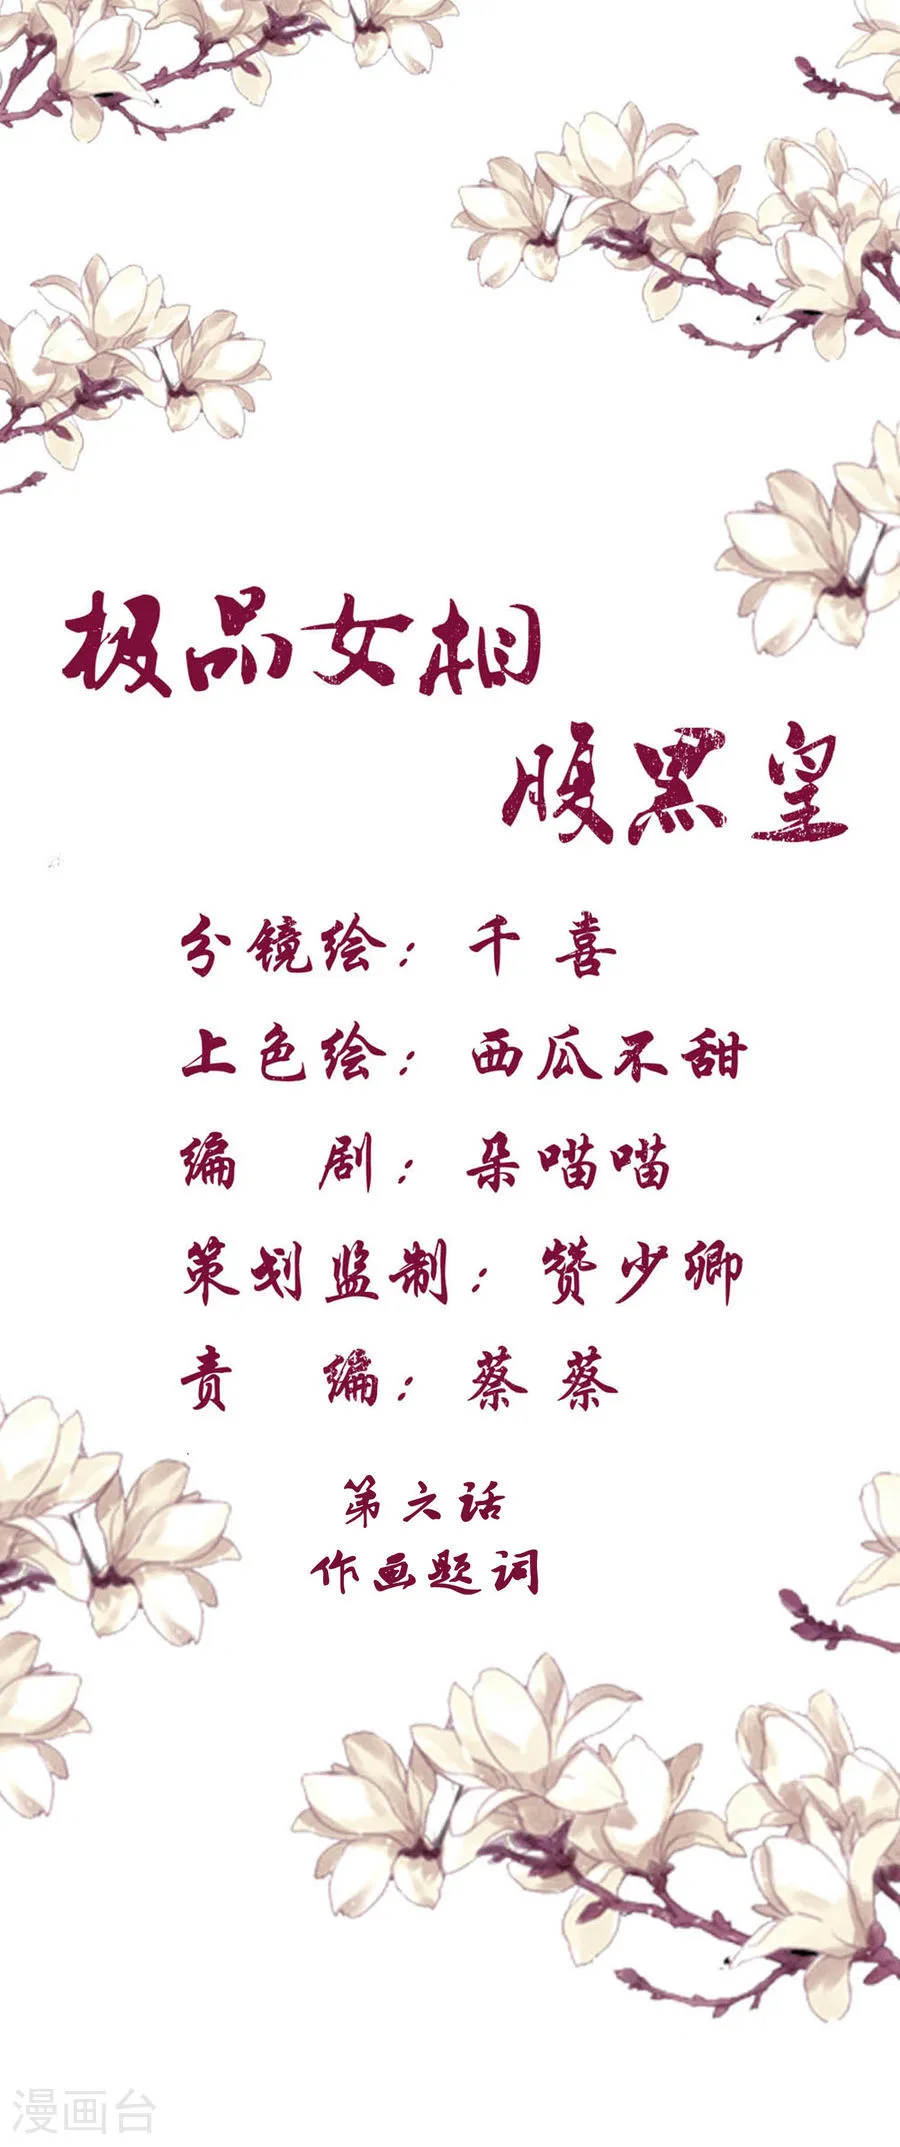 极品女相
腹黑皇
分镜绘：千喜
上色绘：西瓜不甜
编 剧：朵喵喵
策划监制：赞少卿
责 编：蔡蔡
第六话
作画题词
漫画台